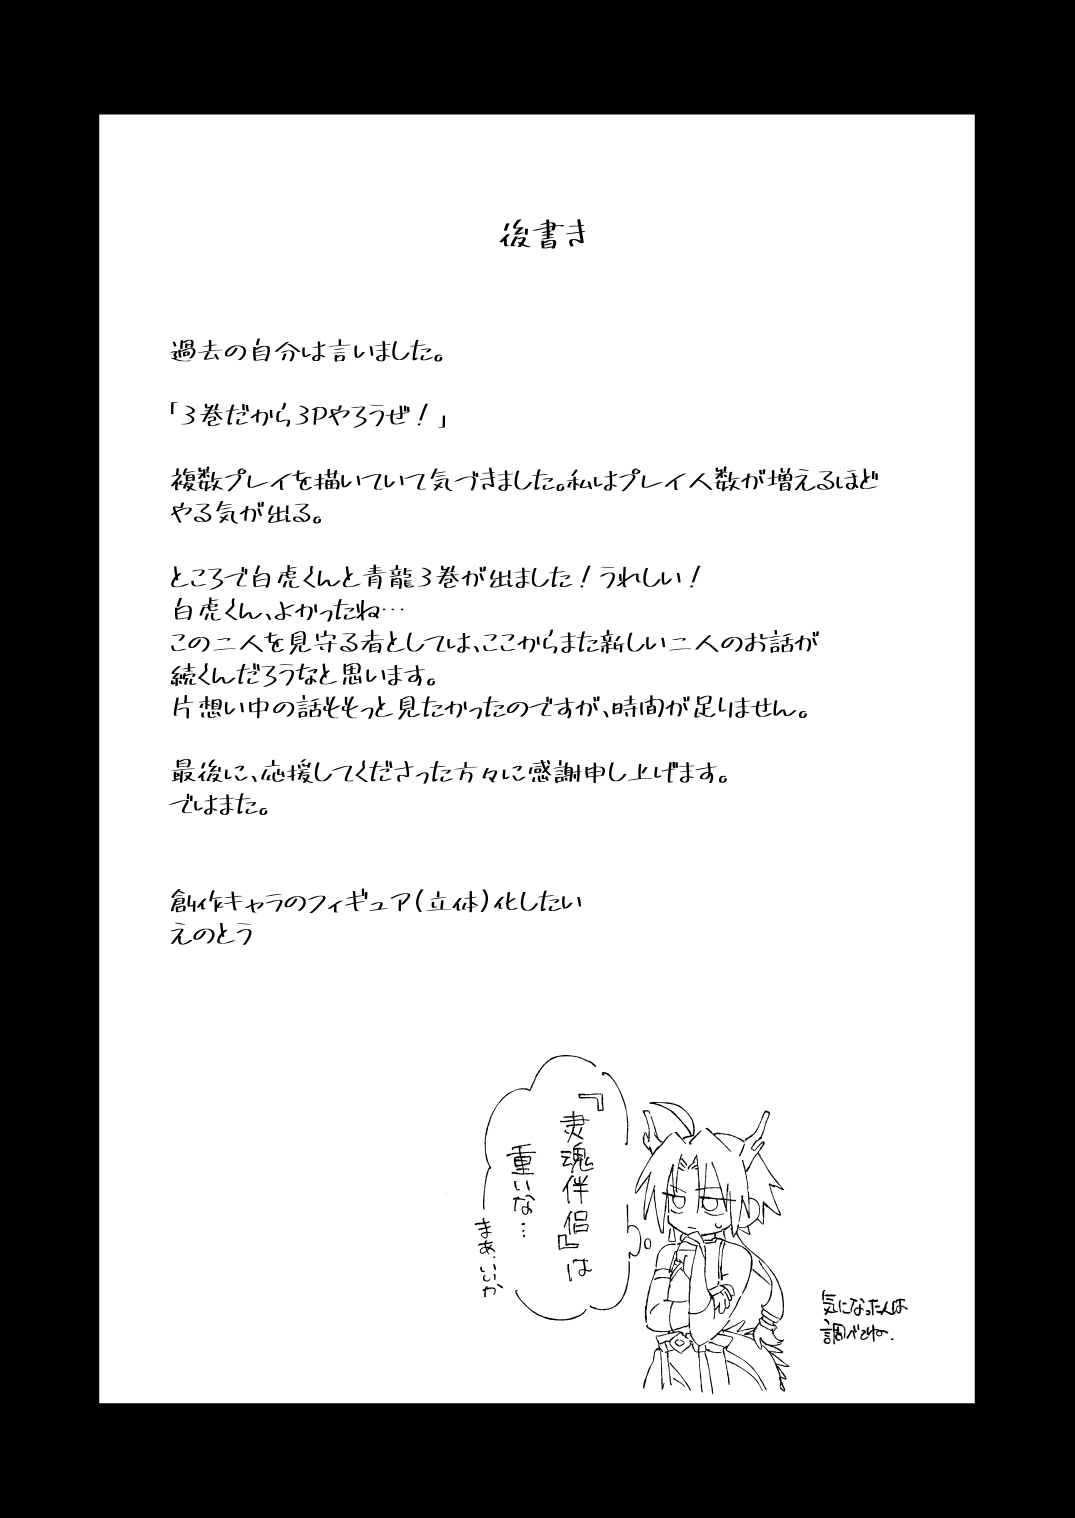 後書き
過去の自分は言いました。
「3巻だから3Pやろうぜ！」
複数プレイを描いていて気づきました。私はプレイ人数が増えるほど
やる気が出る。
ところで白虎くんと青龍3巻が出ました！うれしい！
白虎くん、よかったね…
この二人を見守る者としては、ここからまた新しい二人のお話が
続くんだろうなと思います。
片想い中の話ももっと見たかったのですが、時間が足りません。
最後に、応援してくださった方々に感謝申し上げます。
ではまた。
創作キャラのフィギュア（立体）化したい
えのとう
『灵魂伴侣』は
重いな…
まぁ、いいか
気になった人は
調べてね。